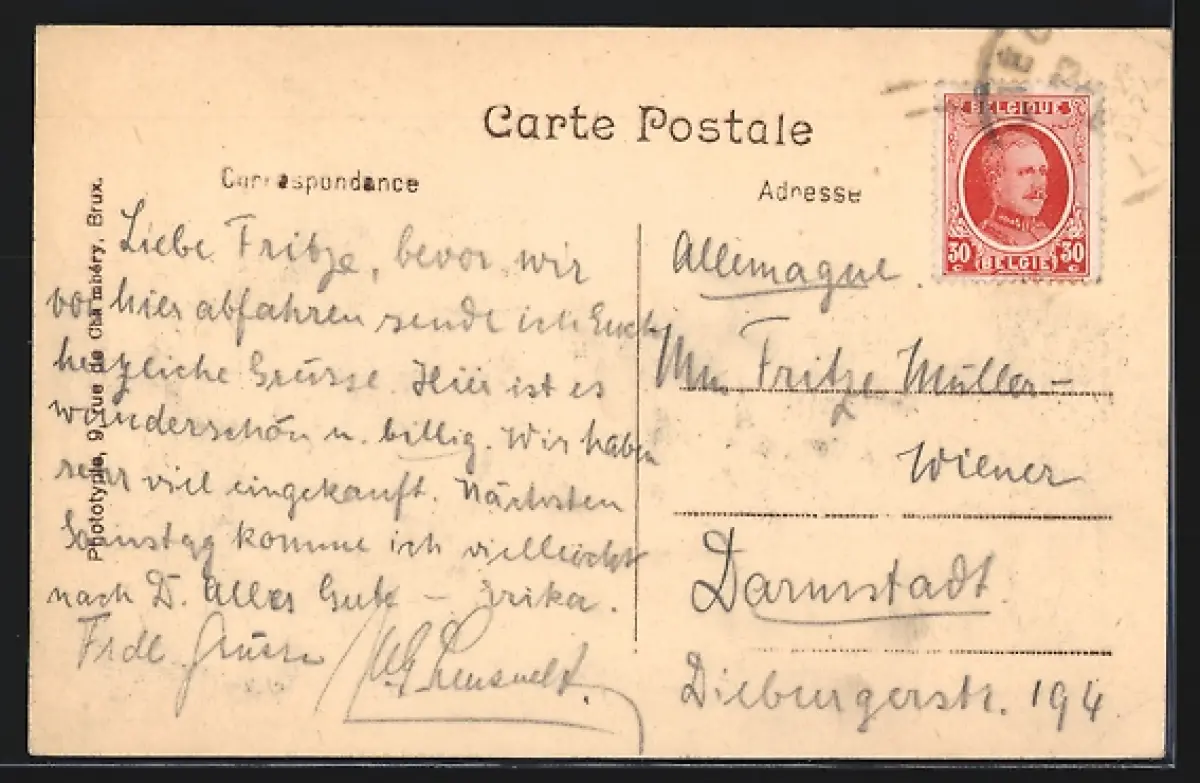 Carte Postale
Correspondance
Adresse
BELGIQUE
30 c BELGIË 30 c
Phototypie, 9, rue de Chambéry, Brux.
Liebe Fritze, bevor wir
von hier abfahren sende ich Euch
herzliche Grüsse. Hier ist es
wunderschön u. billig. Wir haben
sehr viel eingekauft. Nächsten
Samstag komme ich vielleicht
nach D. Alles Gute – Irika.
Frdl. Grüsse
Allemagne
Fritze Müller-
Wiener
Darmstadt
Dieburgerstr. 194